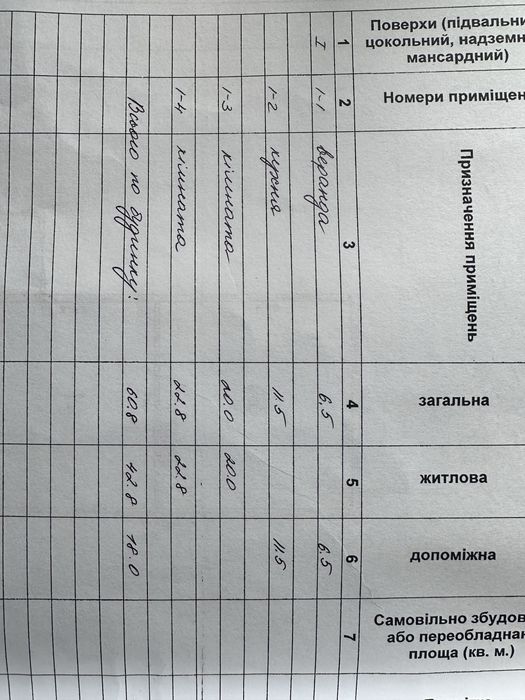 Поверхи (підвальни
цокольний, надземн
мансардний)
Номери приміщен
Призначення приміщень
загальна
житлова
допоміжна
Самовільно збудов
або переобладнан
площа (кв. м.)
1 2 3 4 5 6 7
I 1-1 веранда 6.5 6.5
1-2 кухня 11.5 11.5
1-3 кімната 20.0 20.0
1-4 кімната 22.8 22.8
Всього по будинку: 60.8 42.8 18.0